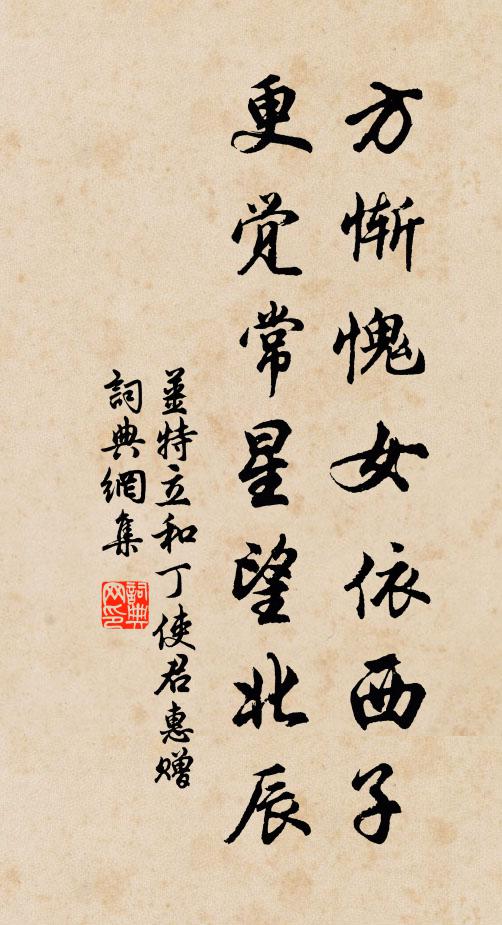 方惭愧女依西子
更觉常星望北辰
薑特立和丁使君惠赠
詞典網集
詞典网印